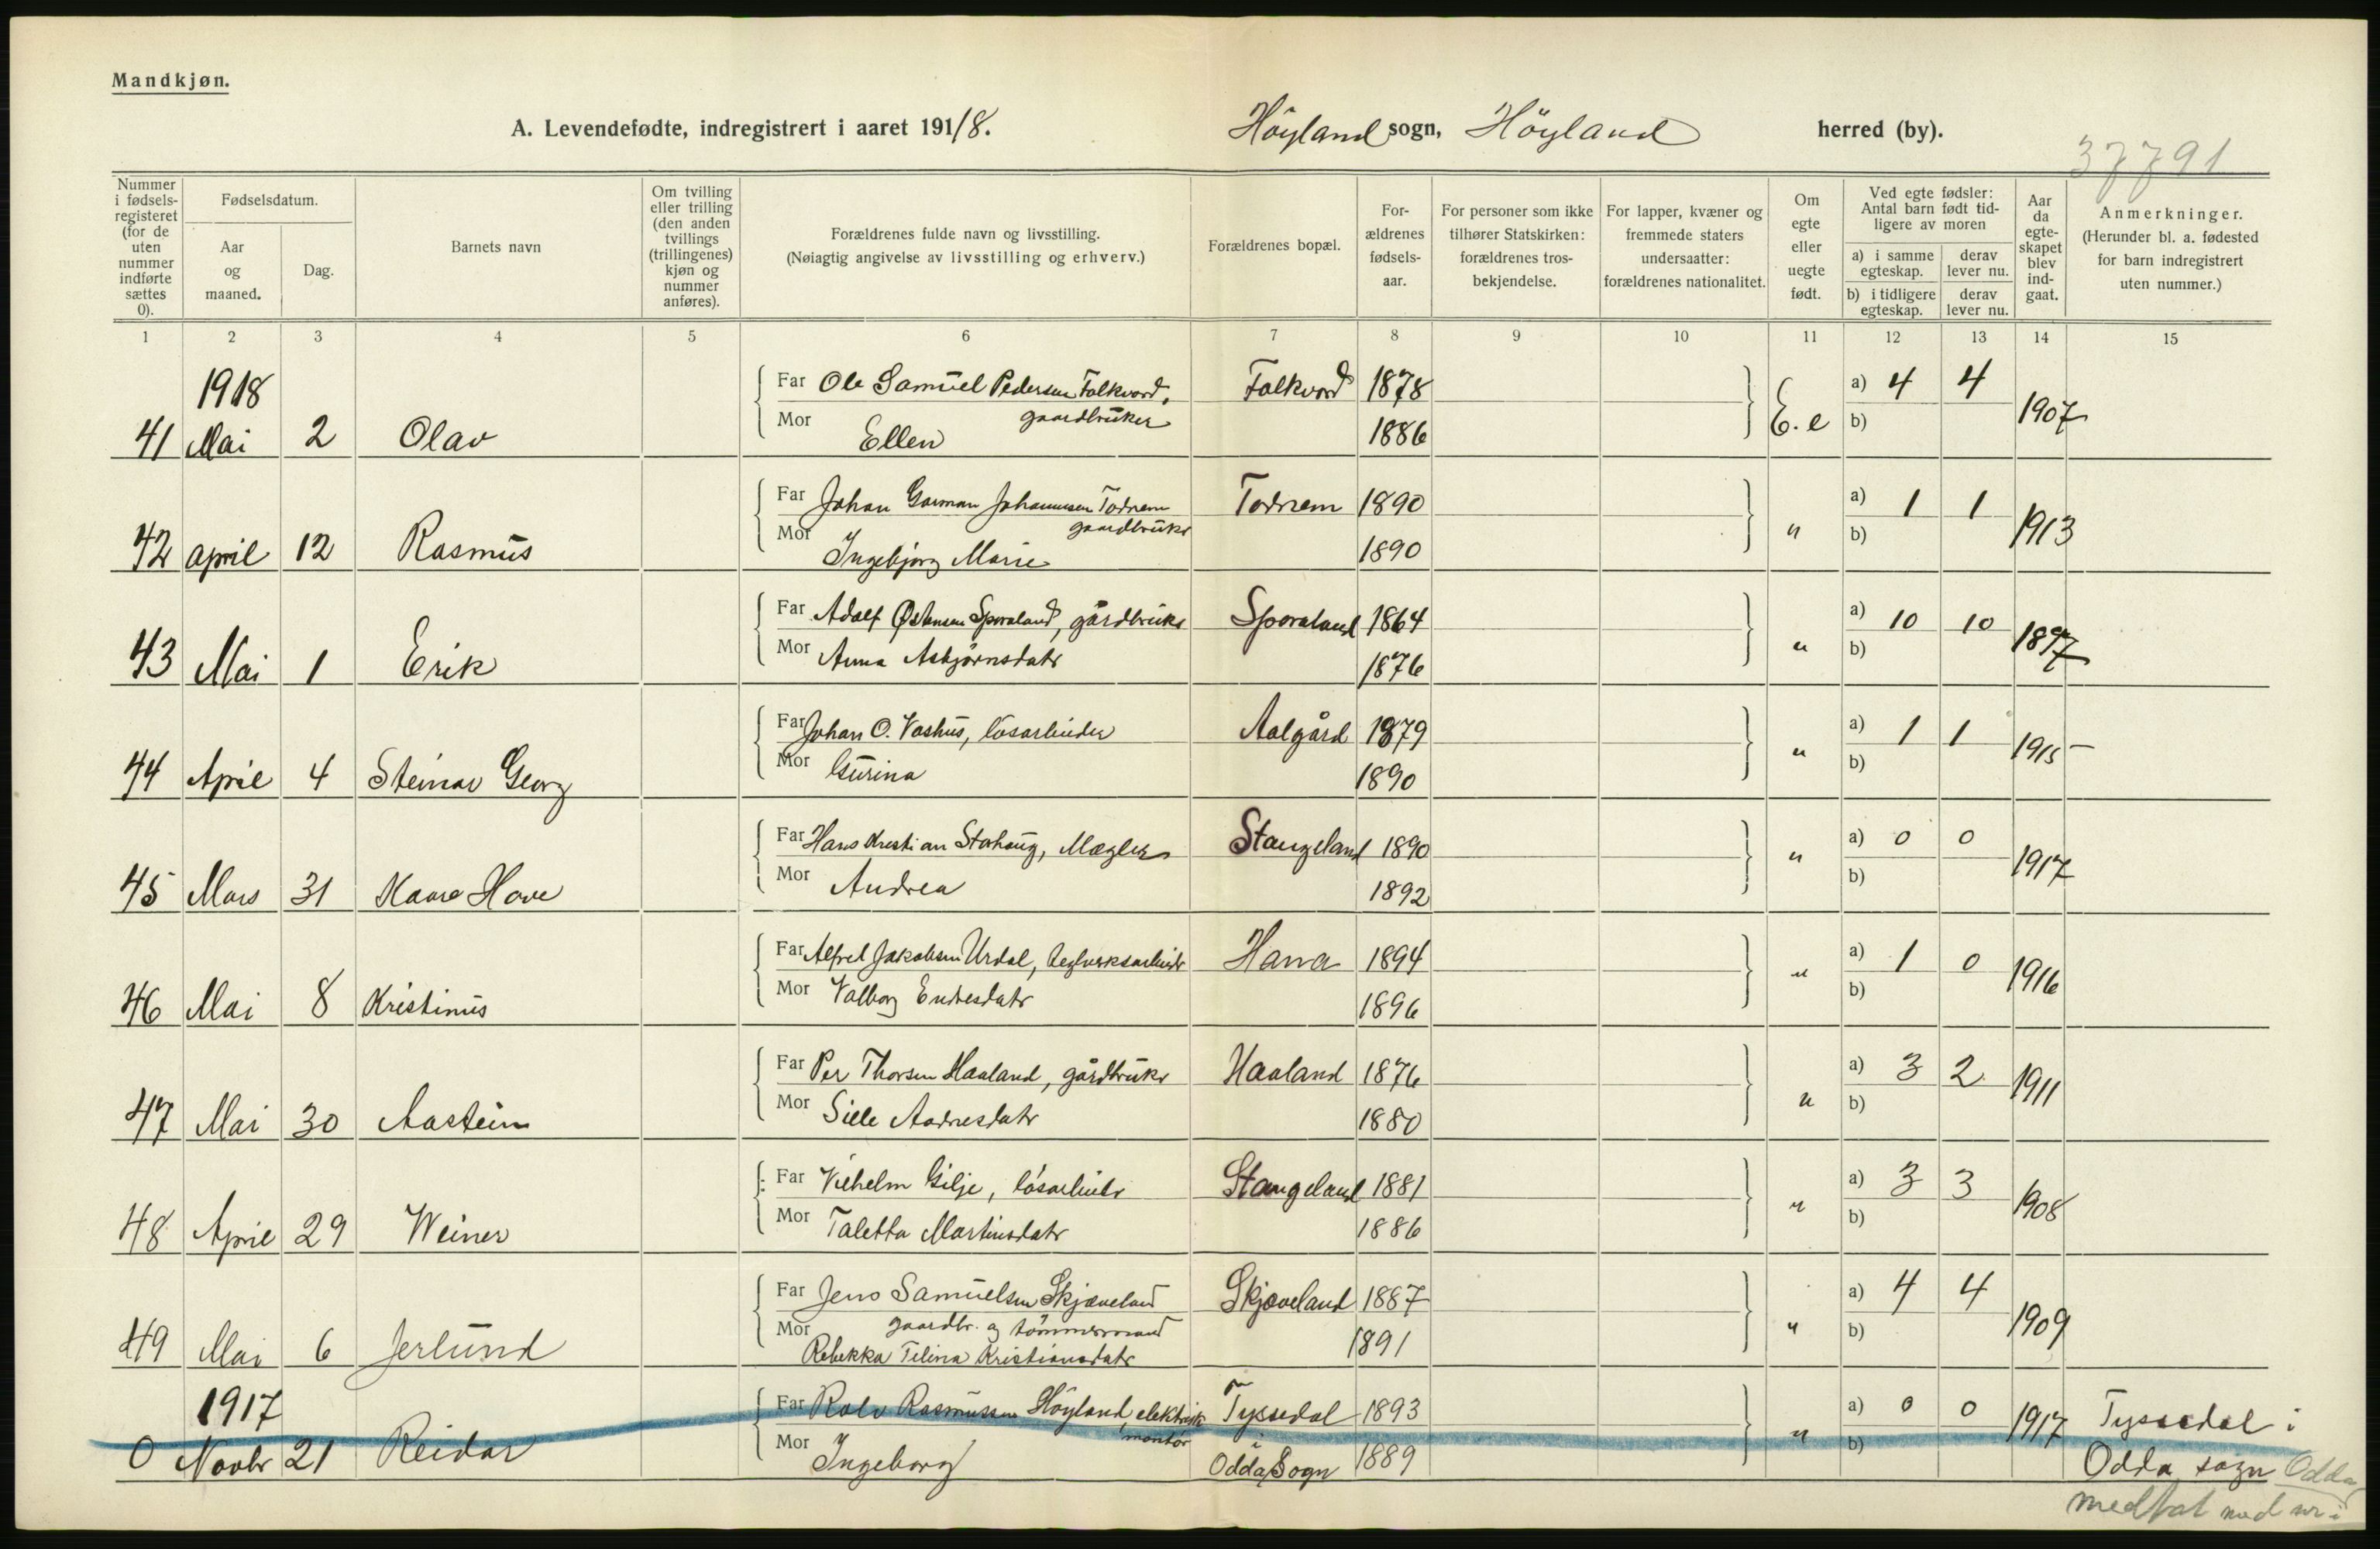 Mandkjøn.
A. Levendefødte, indregistrert i aaret 191/8. Höyland sogn, Höyland herred (by).
37791
Nummer i fødsels-registeret (for de uten nummer indførte sættes 0).
Fødselsdatum.
Aar og maaned.
Dag.
Barnets navn
Om tvilling eller trilling (den anden tvillings (trillingenes) kjøn og nummer anføres).
Forældrenes fulde navn og livsstilling.
(Nøiagtig angivelse av livsstilling og erhverv.)
Forældrenes bopæl.
For-ældrenes fødsels-aar.
For personer som ikke tilhører Statskirken: forældrenes tros-bekjendelse.
For lapper, kvæner og fremmede staters undersaatter: forældrenes nationalitet.
Om egte eller uegte født.
Ved egte fødsler: Antal barn født tid-ligere av moren
a) i samme egteskap. derav lever nu.
b) i tidligere egteskap. derav lever nu.
Aar da egte-skapet blev ind-gaat.
Anmerkninger.
(Herunder bl. a. fødested for barn indregistrert uten nummer.)
1 2 3 4 5 6 7 8 9 10 11 12 13 14 15
1918 Far Ole Samüel Pedersen Folkvord, Folkvord 1878 a) 4 4
gaardbrüker
41 Mai 2 Olav Mor Ellen 1886 E. e b) 1907
Far Johan Gorman Johannesen Todnem Todnem 1890 a) 1 1
gaardbrükr
42 april 12 Rasmüs Mor Ingebjorg Marie 1890 " b) 1913
Far Adolf Østensen Sporaland, gårdbrüke Sporaland 1864 a) 10 10
43 Mai 1 Erik Mor Anna Asbjørnsdatr 1876 " b) 1897
Far Johan O. Vashüs, lösarbeider Aalgård 1879 a) 1 1
44 April 4 Steinar Georg Mor Gürina 1890 " b) 1915
Far Hans Kristian Storhaüg, Mægler Stangeland 1890 a) 0 0
45 Mars 31 Kaare Hove Mor Andrea 1892 " b) 1917
Far Alfred Jakobsen Urdal, teglverksarbeidr Hana 1894 a) 1 0
46 Mai 8 Kristinüs Mor Valborg Endresdatr 1896 " b) 1916
Far Per Thorsen Haaland, gårdbrükr Haaland 1876 a) 3 2
47 Mai 30 Aastein Mor Siele Aadnesdatr 1880 " b) 1911
Far Vilhelm Gilje, lösarbeidr Stangeland 1881 a) 3 3
48 April 29 Weiner Mor Taletta Martinsdatr 1886 " b) 1908
Far Jens Samüelsen Skjæveland Skjæveland 1887 a) 4 4
gaardbr. og tömmermand
49 Mai 6 Jerlünd Mor Rebekka Tilina Kristiansdatr 1891 " b) 1909
1917 Far Rolv Rasmüssen Höyland, elektrisk Tyssedal 1893 a) 0 0 1917 Tyssedal i
montör i
0 Novbr 21 Reidar Mor Ingeborg Odda Sogn 1889 " b) Odda sogn Odda
medtat med nr i